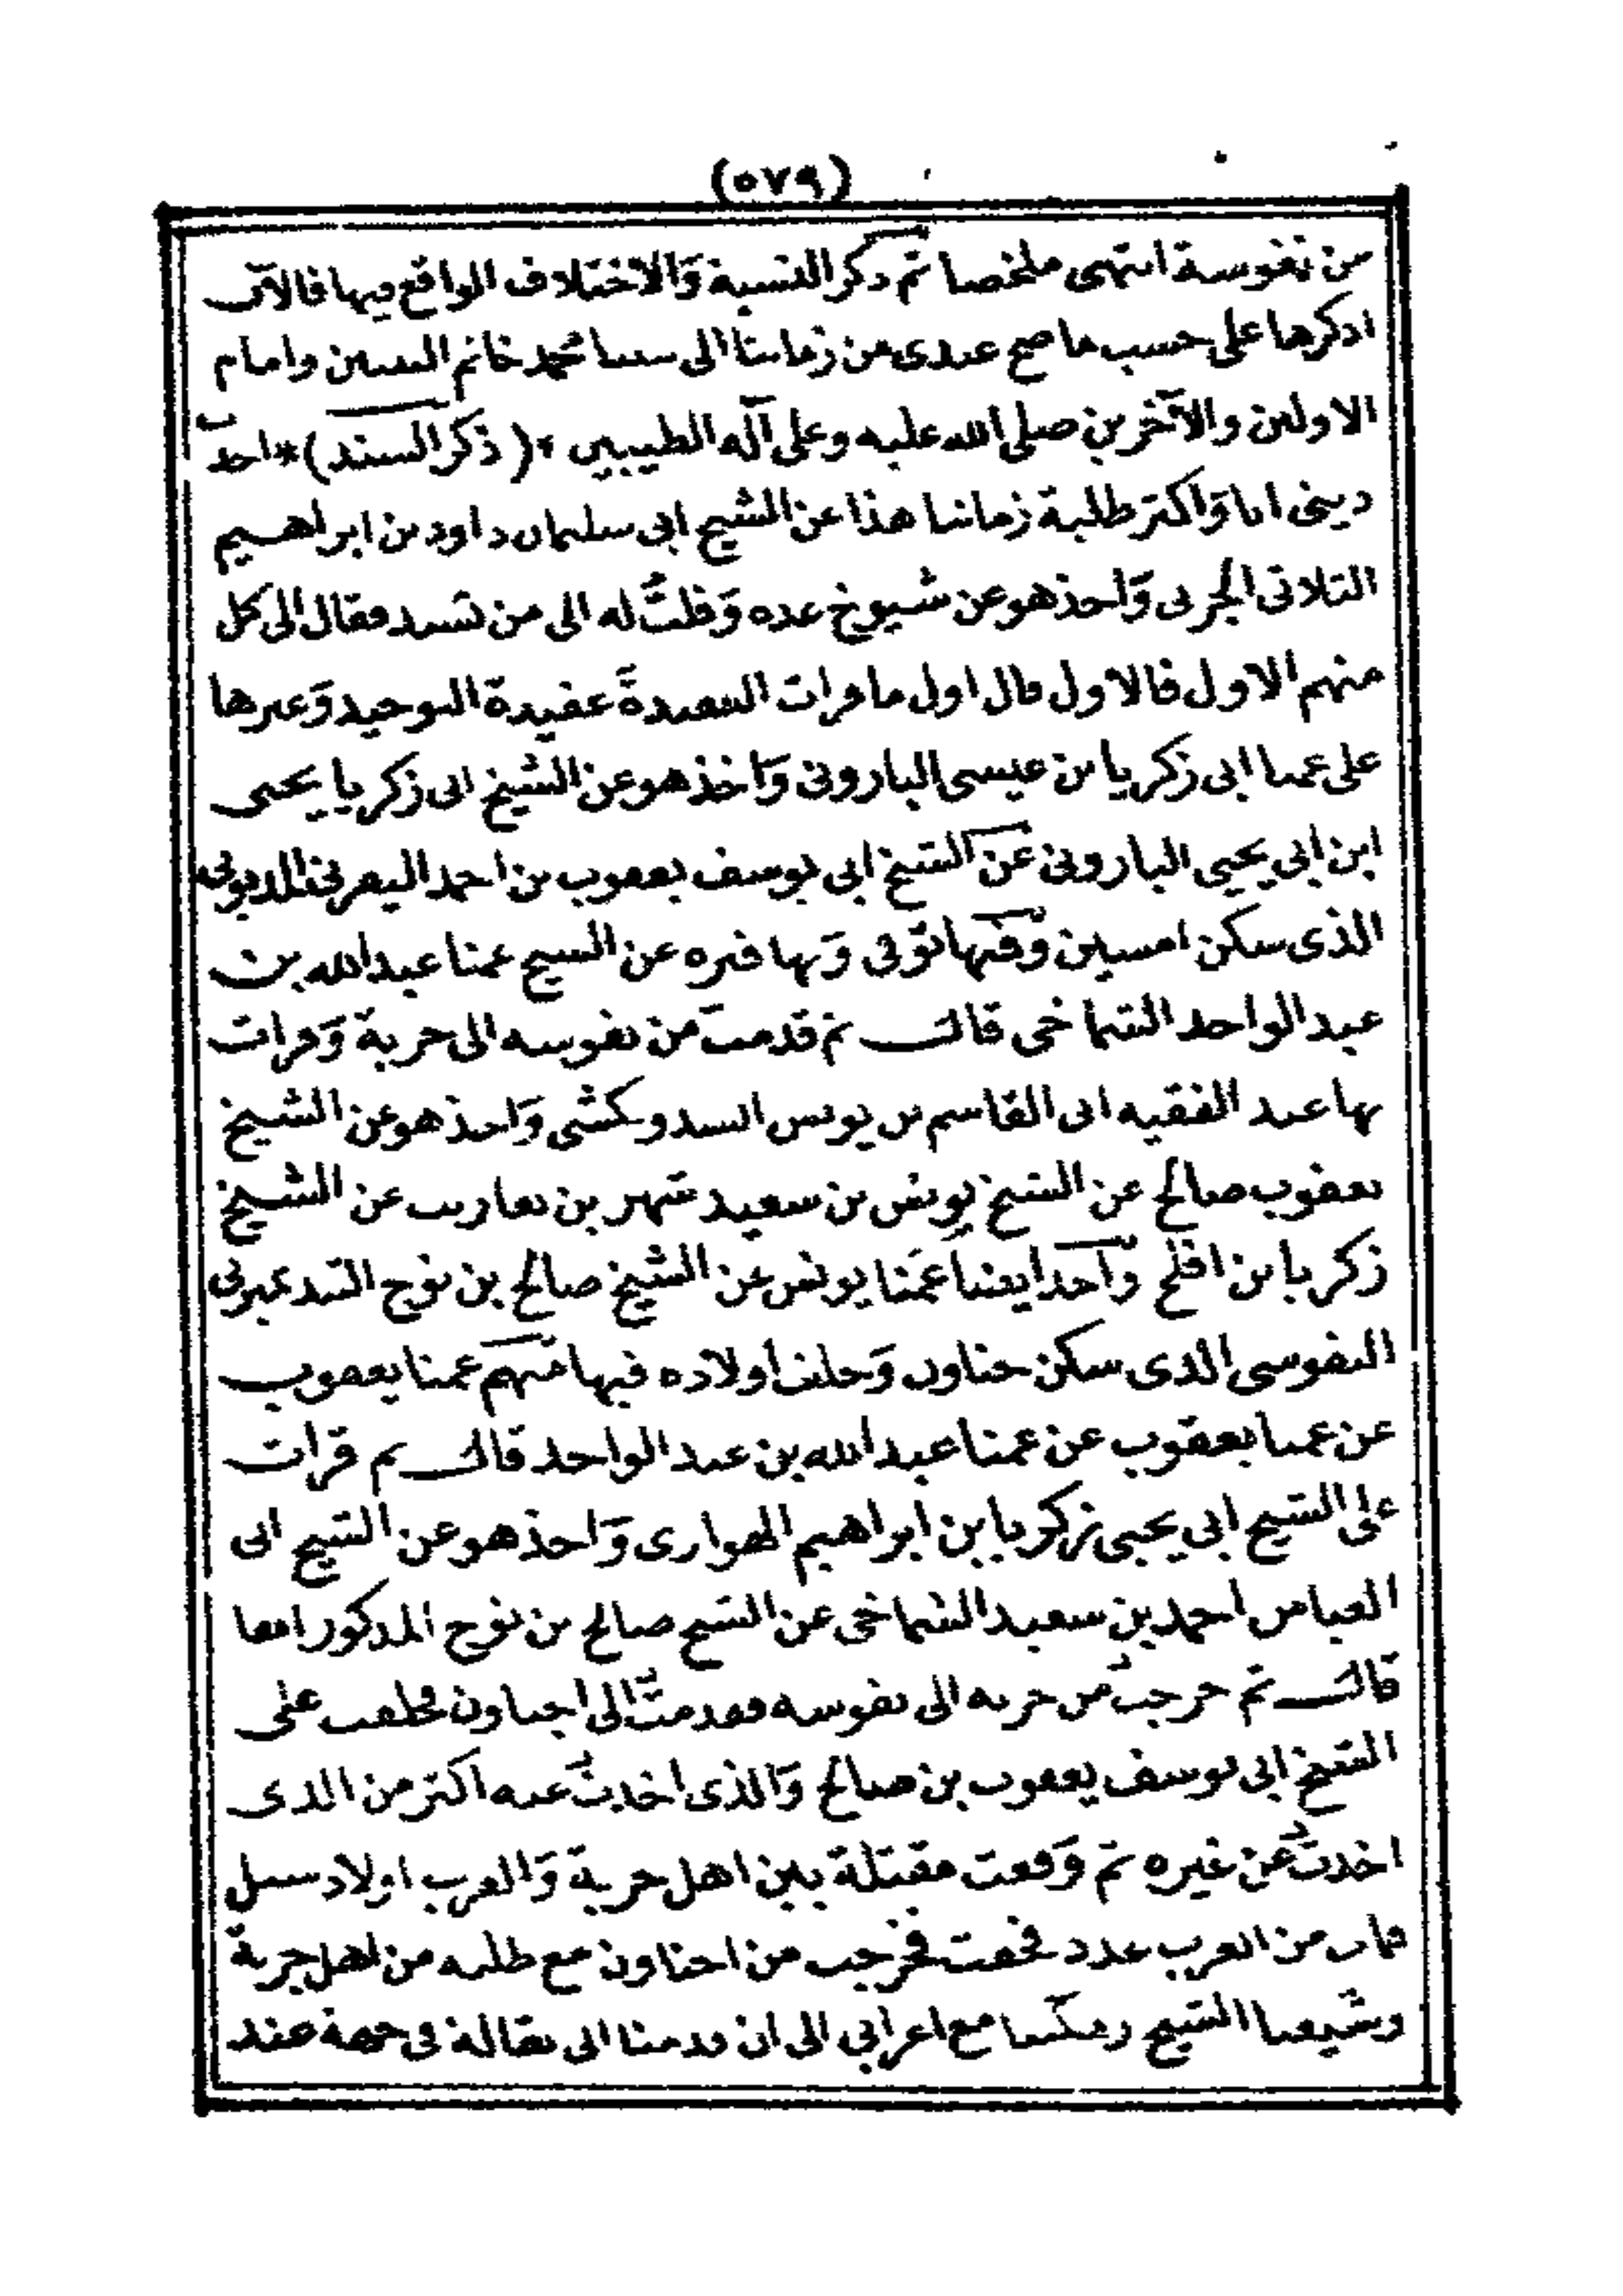 (٥٧٩)
من نفوسة انتهى ملخصا ثم ذكر النسبة وَالاختلاف الواقع فيها فالآن
اذكرها على حسب ما صح عندى من زماننا الى سيدنا محمد خاتم النبيين وامام
الاولين والآخرين صلى الله عليه وعلى آله الطيبين * (ذكر السند) * اخذت
دينى انا وَاكثر طلبة زماننا هذا عن الشيخ ابى سليمان داود بن ابراهيم
التلاتى الجربى وَاخذ هو عن شيوخ عده وَقلتُ له الى من تسند فقال الى كل
منهم الاول فالاول قال اول ما قرات العقيدةَ عقيدة التوحيد وَغيرها
على عمنا ابى زكريا بن عيسى البارونى وَاخذ هو عن الشيخ ابى زكريا يحيى
ابن ابى يحيى البارونى عن الشيخ ابى يوسف يعقوب بن احمد اليفرنى
الذى سكن امسين وفيها توفى وَبها قبره عن الشيخ عمنا عبد الله بن
عبد الواحد الشماخى قال ثم قدمت من نفوسه الى جربة وَقرات
بها عند الفقيه ابى القاسم بن يونس السدويكشى وَاخذ هو عن الشيخ
يعقوب صالح عن الشيخ يونس بن سعيد شهر بن تعاريت عن الشيخ
زكريا بن افلح وَاخذ ايضا عمَنا يونس عن الشيخ صالح بن نوح التندميرتى
النفوسى الذى سكن جناون وَخلف اولاده فيها منهم عمنا يعقوب
عن عمنا يعقوب عن عمنا عبد الله بن عبد الواحد قال ثم قرات
على الشيخ ابى يحيى زكريا بن ابراهيم الهوارى وَاخذ هو عن الشيخ ابى
العباس احمد بن سعيد الشماخى عن الشيخ صالح بن نوح المذكور
قال ثم خرجت من جربه الى نفوسه فقدمت الى اجناون فحلقت على
الشيخ ابى يوسف يعقوب بن صالح وَالذى اخذتُ عنه اكثر من الذى
اخذتُ عن غيره ثم وَقعت مقتلة بين اهل جربة وَالعرب اولاد
فمات من العرب عدد فخفت فخرجت من اجناون مع طلبه من اهل جربة
وشيعنا الشيخ مع اعرابى الى ان قدمنا الى بقالة فى جهة عند